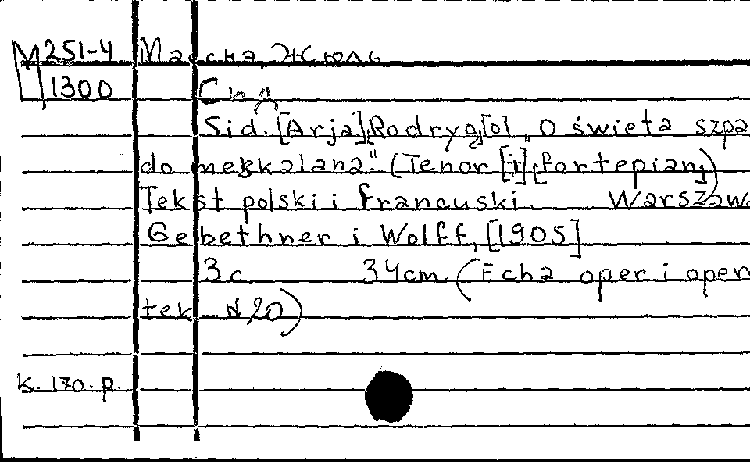 М 251-4 Массна, Жюль
1300 Сид
Sid. [Arja] Rodryg[o] „O święta szpa
do mego kolana." (Tenor [i] fortepian)
Tekst polski i francuski. Warszawa
Gebethner i Wolff, [1905]
3 с 34cm (Echa oper i oper
tek №20)
к. 170. р.